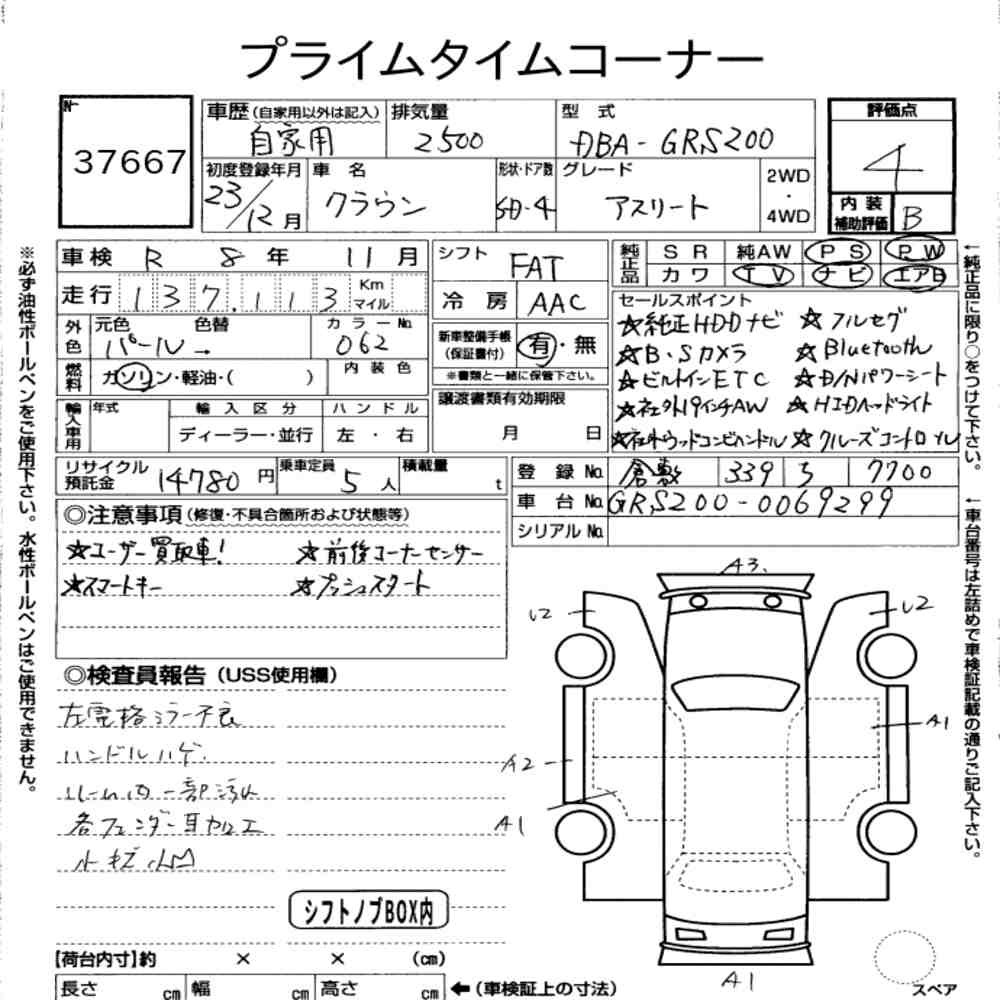 プライムタイムコーナー
No
37667
車歴(自家用以外は記入) 排気量 型 式
自家用 2500 DBA-GRS200
評価点
4
内 装
補助評価 B
初度登録年月 車 名 形状・ドア数 グレード
23/12月 クラウン SD-4 アスリート
2WD
・
4WD
車検 R 8 年 11 月
走行 137,113 Km
マイル
外色 元色 色替 カラーNo.
パール → 062
燃料 ガソリン・軽油・( ) 内装色
輸入車用 年式 輸入区分 ハンドル
ディーラー・並行 左・右
シフト FAT
冷房 AAC
新車整備手帳
(保証書付) 有・無
※書類と一緒に保管下さい。
譲渡書類有効期限
月 日
純正品 SR 純AW PS PW
カワ TV ナビ エアB
セールスポイント
☆純正HDDナビ ☆フルセグ
☆B・Sカメラ ☆Bluetooth
☆ビルトインETC ☆D/Nパワーシート
☆社外19インチAW ☆HIDヘッドライト
☆社外ウッドコンビハンドル ☆クルーズコントロール
リサイクル
預託金 14780 円 乗車定員 5 人 積載量 t
登録No. 倉敷 339 う 7700
車台No. GRS200-0069299
シリアルNo.
◎注意事項(修復・不具合箇所および状態等)
☆ユーザー買取車! ☆前後コーナーセンサー
☆スマートキー ☆プッシュスタート
◎検査員報告(USS使用欄)
左電格ミラー不良
ハンドルハゲ
ルーム内一部汚れ
各フェンダー耳加工
小キズ小凹
シフトノブBOX内
A3.
U2
U2
A1
A2
A1
A1
スペア
【荷台内寸】約 × × (cm)
長さ cm 幅 cm 高さ cm ←(車検証上の寸法)
※必ず油性ボールペンをご使用下さい。水性ボールペンはご使用できません。
←純正品に限り○をつけて下さい。
←車台番号は左詰めで車検証記載の通りご記入下さい。